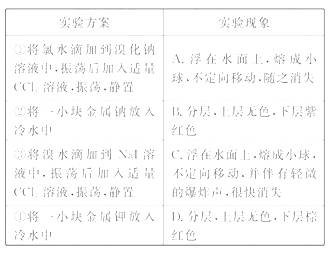 实验方案
实验现象
①将氯水滴加到溴化钠
溶液中,振荡后加入适量
CCl₄溶液,振荡,静置
A.浮在水面上,熔成小
球,不定向移动,随之消失
②将一小块金属钠放入
冷水中
B.分层,上层无色,下层紫
红色
③将溴水滴加到NaI溶
液中,振荡后加入适量
CCl₄溶液,振荡,静置
C.浮在水面上,熔成小球,
不定向移动,并伴有轻微
的爆炸声,很快消失
④将一小块金属钾放入
冷水中
D.分层,上层无色,下层棕
红色